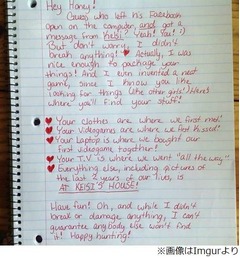 Hey Honey!
Guess who left his Facebook
open on the computer, and got a
message from Keisi? Yeah! You! :)
But don't worry, I didn't
break anything! ♥ Actually, I was
nice enough to package your
things! And I even invented a neat
game, since I know you like
looking for things (like other girls) Here's
where you'll find your stuff!
♥ Your clothes are where we first met!
♥ Your videogames are where we first kissed!
♥ Your Laptop is where we bought our
first videogame together!
♥ Your T.V is where we went "all the way".
♥ Everything else, including pictures of
the last 2 years of our lives, is
AT KEISI'S HOUSE!
Have fun! Oh, and while I didn't
break or damage anything, I can't
guarantee anybody else won't find
it! Happy hunting!
※画像はImgurより